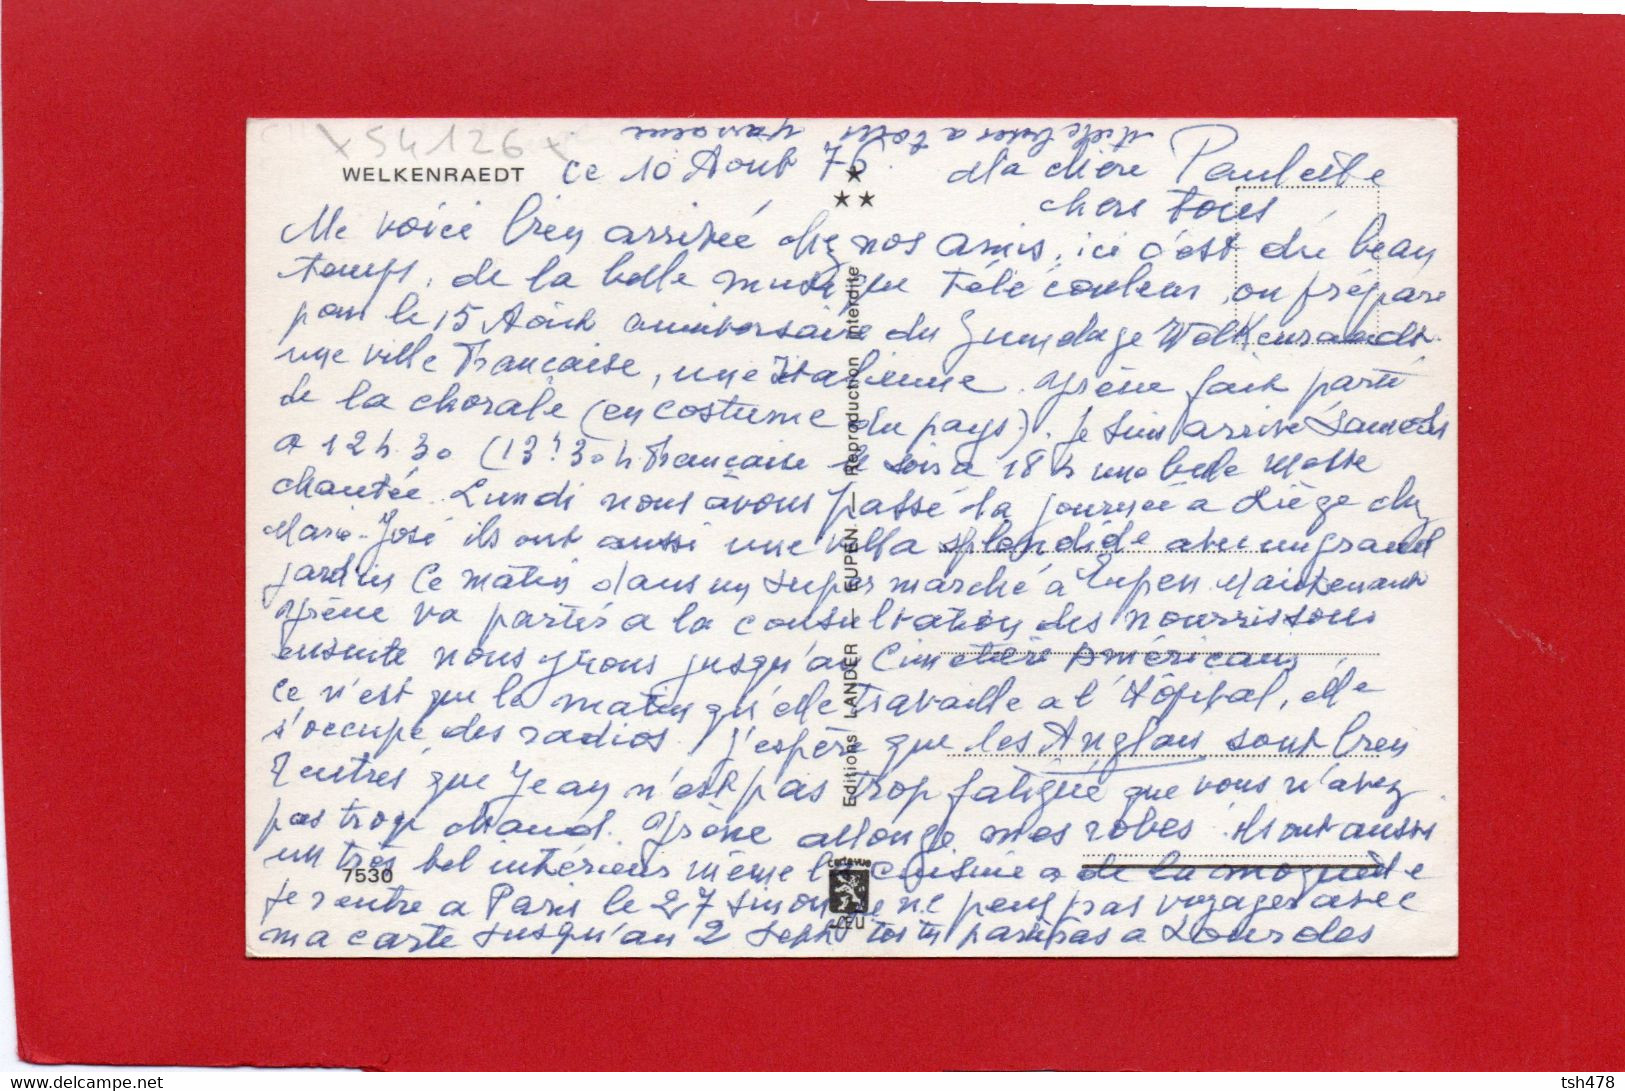 x 54126 x
WELKENRAEDT
Mille baises a tous
ce 10 Août 76. Ma chère Paulette
chers tous
Me voici bien arrivée chez nos amis, ici c'est du beau
temps, de la belle musique Télé couleur, on prépare
pour le 15 Août anniversaire du Jumelage Welkenraedt
une ville Française, une Italienne. Yrène fait parti
de la chorale (en costume du pays). Je suis arrivé Samedi
a 12h.30 (13h30 h Française le soir a 18h une belle Messe
chantée. Lundi nous avons passé la journée a Liège chez
Marie-José ils ont aussi une villa splendide avec un grand
jardin Ce matin dans un super marché a Eupen Maintenant
Yrène va partir a la consultation des nourrissons
ensuite nous yrons jusqu'au Cimetière Américain,
ce n'est que le matin qu'elle travaille a l'Hôpital, elle
s'occupe des radios. J'espère que les Anglais sont bien
rentrés que Jean n'est pas trop fatigué que vous n'avez
pas trop chaud. Yrène allonge mes robes. ils ont aussi
un très bel intérieur même la cuisine a de la moquette
je rentre a Paris le 27 sinon je ne peux pas voyager avec
ma carte jusqu'au 2 Sept. pas a Lourdes
Editions LANDER — EUPEN — Reproduction interdite
cartevue
7530
tsh478
https://www.delcampe.net